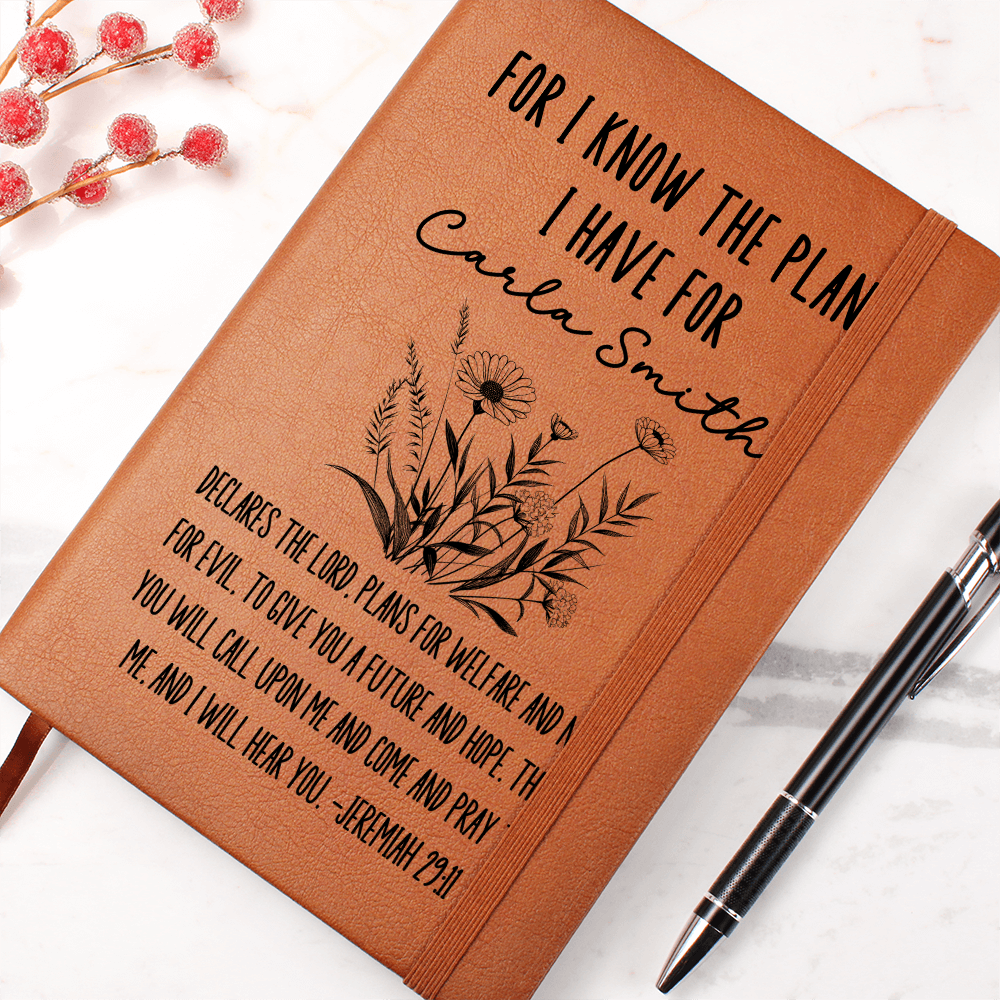 FOR I KNOW THE PLAN
I HAVE FOR
Carla Smith
DECLARES THE LORD, PLANS FOR WELFARE AND
FOR EVIL, TO GIVE YOU A FUTURE AND HOPE. TH
YOU WILL CALL UPON ME AND COME AND PRAY
ME, AND I WILL HEAR YOU. -JEREMIAH 29:11